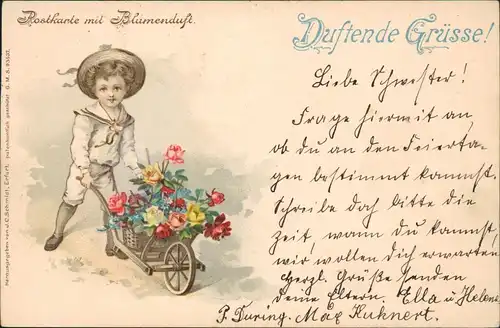 Postkarte mit Blumenduft.
Duftende Grüsse!
Herausgegeben von J. C. Schmidt, Erfurt. patentamtlich geschützt G. M. S.
Liebe Schwester!
Frage hiermit an,
ob du an den Feierta-
gen bestimmt kommst.
Schreibe doch bitte die
Zeit, wann du kommst,
wir wollen dich erwarten
Herzl. Grüße senden
deine Eltern. Ella u Helene
Max Kuhnert.